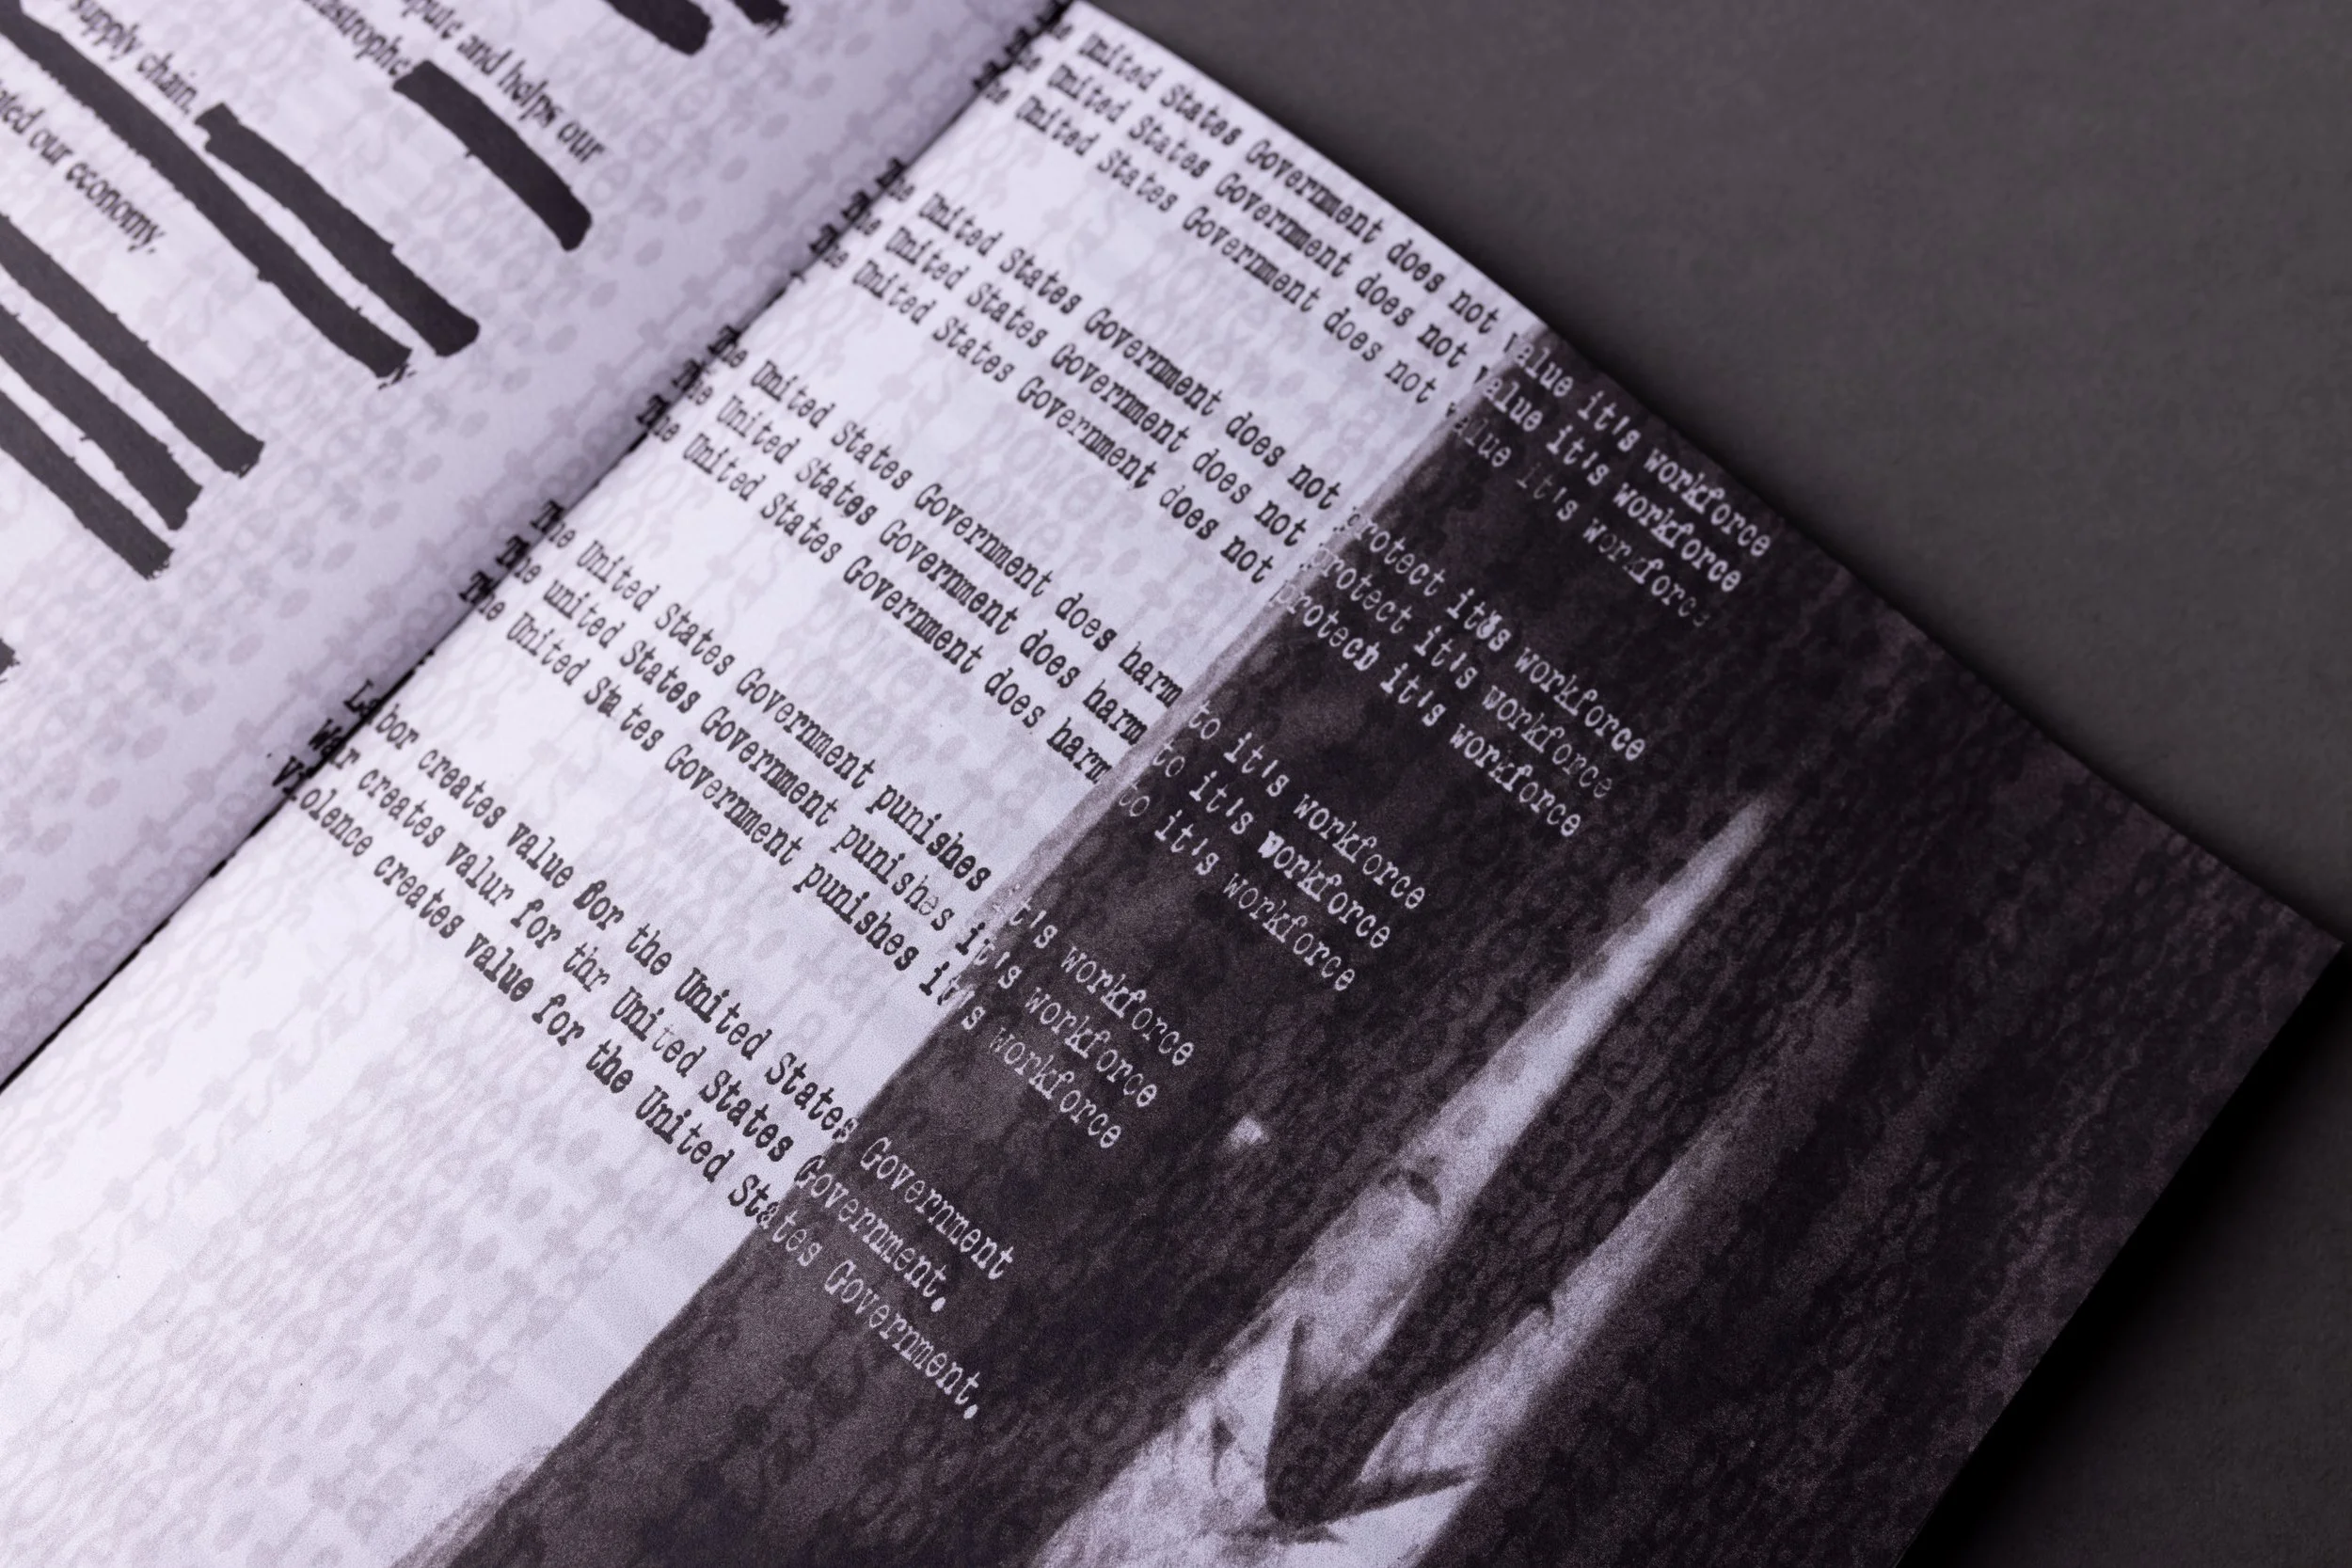 pute and helps our
supply chain.
our economy.
The United States Government does not value it's workforce
The United States Government does not value it's workforce
The United States Government does not value it's workforce
The United States Government does not protect it's workforce
The United States Government does not protect it's workforce
The United States Government does not protect it's workforce
The United States Government does harm to it's workforce
The United States Government does harm to it's workforce
The United States Government does harm to it's workforce
The United States Government punishes it's workforce
The united States Government punishes it's workforce
The United States Government punishes it's workforce
Labor creates value for the United States Government
War creates valur for thr United States Government,
Violence creates value for the United States Government.